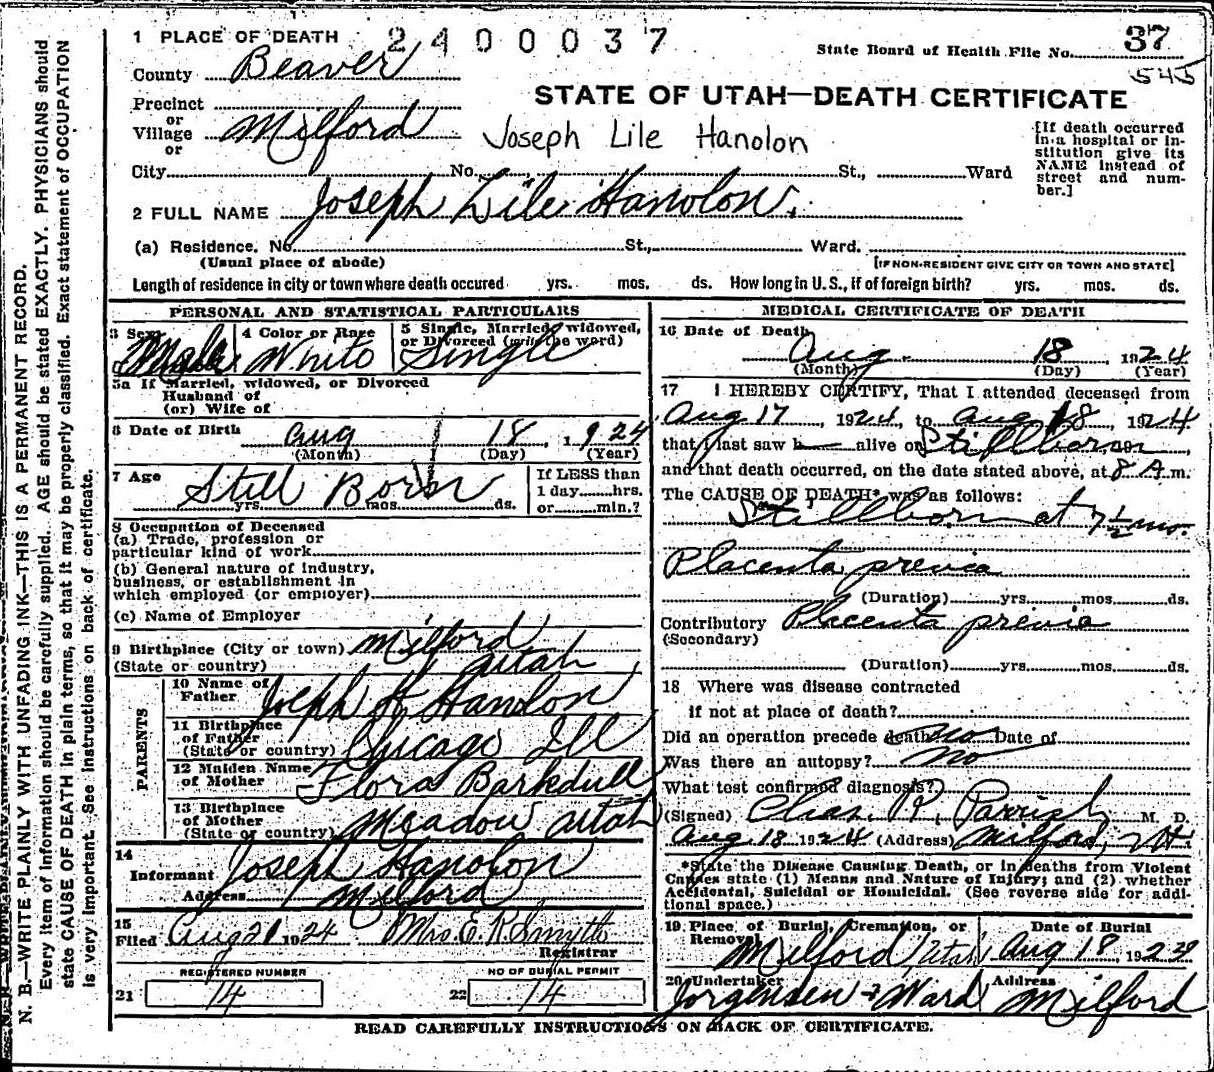 1 PLACE OF DEATH 2400037
State Board of Health File No. 37
545
County Beaver
STATE OF UTAH—DEATH CERTIFICATE
Precinct
or
Village Milford
or
Joseph Lile Hanolon
[If death occurred
in a hospital or in-
stitution give its
NAME instead of
street and num-
ber.]
City No. St., Ward
2 FULL NAME Joseph Lile Hanolon.
(a) Residence. No. St., Ward.
(Usual place of abode) [IF NON-RESIDENT GIVE CITY OR TOWN AND STATE]
Length of residence in city or town where death occured yrs. mos. ds. How long in U. S., if of foreign birth? yrs. mos. ds.
PERSONAL AND STATISTICAL PARTICULARS
3 Sex 4 Color or Race 5 Single, Married, widowed,
or Divorced (write the word)
Male White Single
5a If Married, widowed, or Divorced
Husband of
(or) Wife of
6 Date of Birth Aug 18, 1924
(Month) (Day) (Year)
7 Age Still Born
yrs. mos. ds.
If LESS than
1 day hrs.
or min.?
8 Occupation of Deceased
(a) Trade, profession or
particular kind of work
(b) General nature of industry,
business, or establishment in
which employed (or employer)
(c) Name of Employer
9 Birthplace (City or town) Milford
(State or country) Utah
PARENTS
10 Name of
Father Joeph H Hanolon
11 Birthplace
of Father
(State or country) Chicago Ill
12 Maiden Name
of Mother Flora Barkdull
13 Birthplace
of Mother
(State or country) Meadow Utah
14
Informant Joseph Hanolon
Address Milford
15
Filed Aug 21 1924 Mrs. E. R. Smyth
Registrar
REGISTERED NUMBER NO OF BURIAL PERMIT
21 14 22 14
MEDICAL CERTIFICATE OF DEATH
16 Date of Death
Aug. 18, 1924
(Month) (Day) (Year)
17 I HEREBY CERTIFY, That I attended deceased from
Aug 17, 1924, to Aug 18, 1924
that I last saw h— alive on Stillborn
and that death occurred, on the date stated above, at 8 A.m.
The CAUSE OF DEATH* was as follows:
Stillborn at 7 1/2 mo.
Placenta previa
(Duration) yrs. mos. ds.
Contributory Placenta previa
(Secondary)
(Duration) yrs. mos. ds.
18 Where was disease contracted
if not at place of death?
Did an operation precede death No Date of
Was there an autopsy? No
What test confirmed diagnosis?
(Signed) Chas. R. Parrish M. D.
Aug 18 1924 (Address) Milford, Ut.
*State the Disease Causing Death, or in deaths from Violent
Causes state (1) Means and Nature of Injury; and (2) whether
Accidental, Suicidal or Homicidal. (See reverse side for addi-
tional space.)
19 Place of Burial, Cremation, or
Removal Milford, Utah
Date of Burial
Aug 18, 1924
20 Undertaker Jorgensen & Ward
Address Milford
READ CAREFULLY INSTRUCTIONS ON BACK OF CERTIFICATE.
N. B.—WRITE PLAINLY WITH UNFADING INK—THIS IS A PERMANENT RECORD.
Every item of information should be carefully supplied. AGE should be stated EXACTLY. PHYSICIANS should
state CAUSE OF DEATH in plain terms, so that it may be properly classified. Exact statement of OCCUPATION
is very important. See instructions on back of certificate.